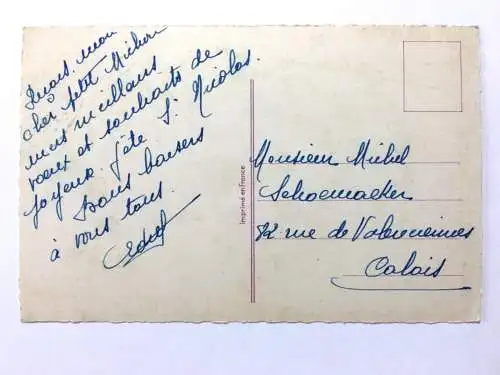 mon
cher petit Michel
meilleurs
vœux et souhaits de
joyeuse fête St Nicolas.
Bons baisers
à vous tous.
Imprimé en France
Monsieur Michel
Schoemacker
rue de Valenciennes
Calais